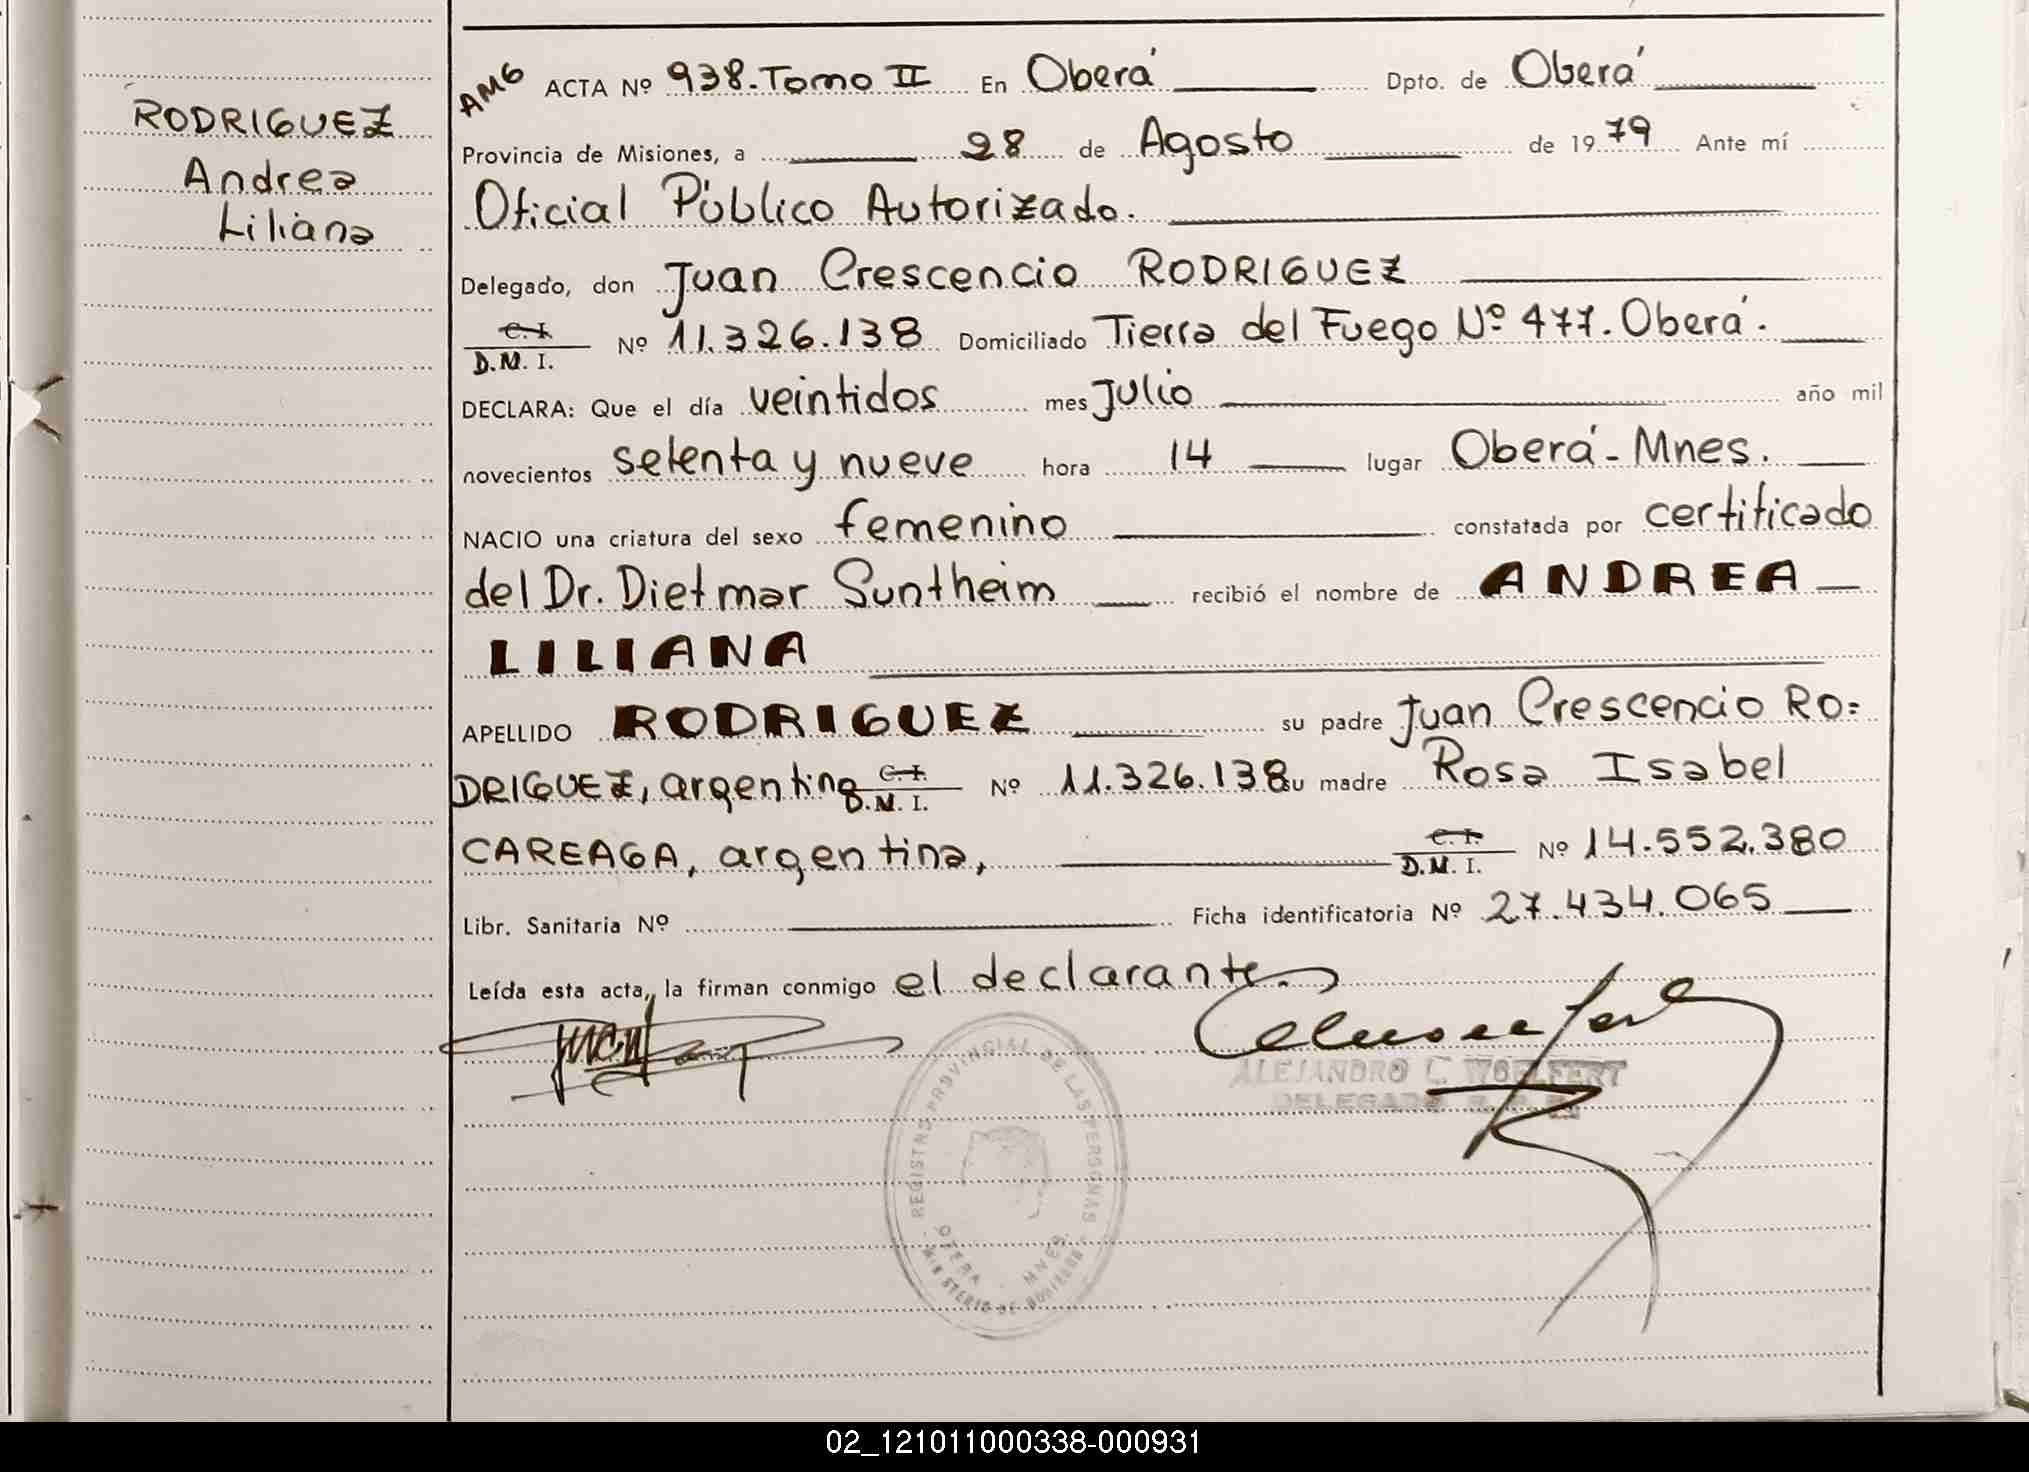 RODRIGUEZ
Andrea
Liliana
AMG ACTA Nº 938. Tomo II En Oberá Dpto. de Oberá
Provincia de Misiones, a 28 de Agosto de 1979 Ante mí
Oficial Público Autorizado.
Delegado, don Juan Crescencio RODRIGUEZ
C. I.
D.M. I. Nº 11.326.138 Domiciliado Tierra del Fuego Nº 477. Oberá.
DECLARA: Que el día veintidos mes Julio año mil
novecientos setenta y nueve hora 14 lugar Oberá - Mnes.
NACIO una criatura del sexo femenino constatada por certificado
del Dr. Dietmar Suntheim recibió el nombre de ANDREA
LILIANA
APELLIDO RODRIGUEZ su padre Juan Crescencio RO=
DRIGUEZ, argentino C. I. D.M. I. Nº 11.326.138 su madre Rosa Isabel
CAREAGA, argentina, C. I. D.M. I. Nº 14.552.380
Libr. Sanitaria Nº Ficha identificatoria Nº 27.434.065
Leída esta acta, la firman conmigo el declarante.
ALEJANDRO C. WOELFERT
DELEGADO
REGISTRO PROVINCIAL DE LAS PERSONAS
OBERA - MNES.
MINISTERIO DE GOBIERNO
02_121011000338-000931